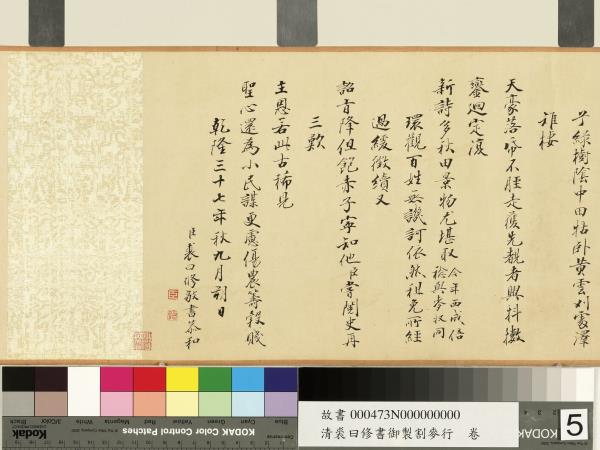 綠樹陰中田牯卧黃雲刈處澤
雉棲
天豪落帋不脛走先覩者興抖擻
鑾迴定復
新詩多秋田景物尤堪取今年西成倍
稔與麥收同
環觀百姓無譏訶依然租免所經
過緩徵續又
詔旨降但飽赤子寧知他臣嘗閱史再
三歎
主恩若此古稀見
聖心還為小民謀更慮傷農籌穀賤
乾隆三十七年秋九月朔日
臣裘曰修敬書恭和
Blue Cyan Green Yellow Red Magenta White 3/Color Black
Kodak KODAK Color Control Patches
故書 000473N000000000
清裘曰修書御製割麥行 卷
5